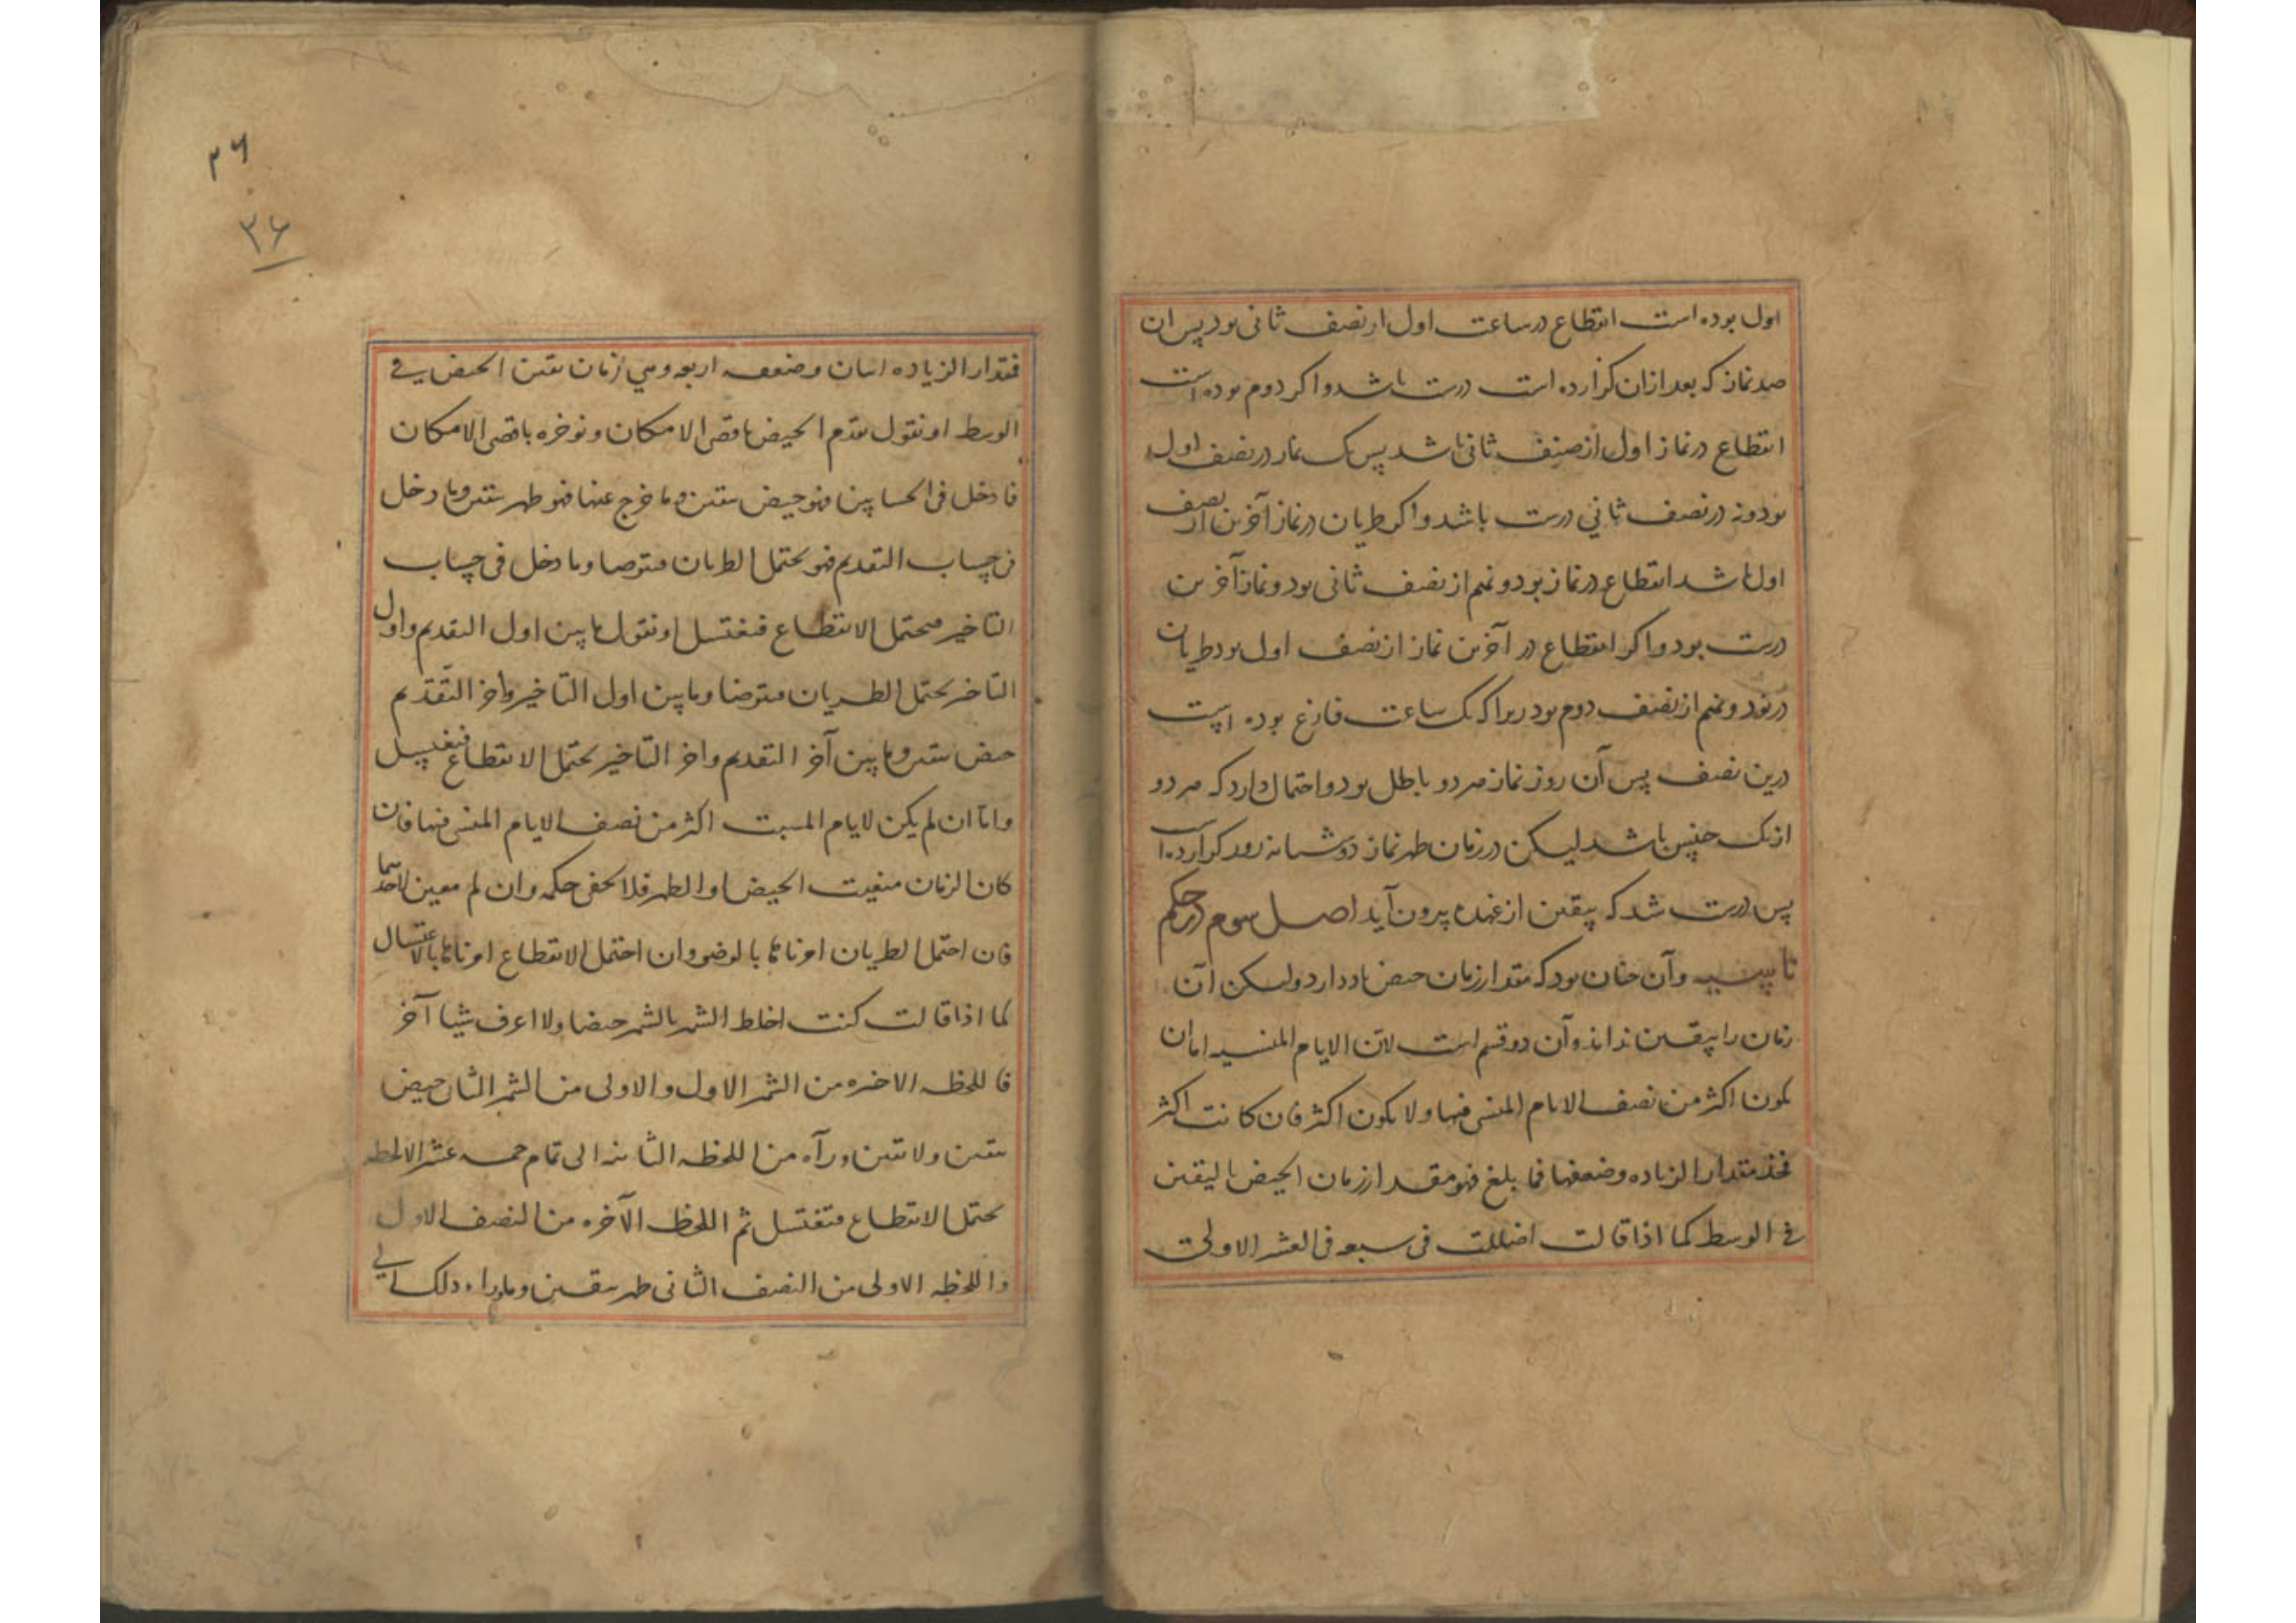 اول بوده است انقطاع در ساعت اول از نصف ثانی بود پس ان
صد نماز که بعد از ان گزارده است درست باشد و اگر دوم بوده است
انقطاع در نماز اول از نصف ثانی باشد پس یک نماز در نصف اول
نود ونه در نصف ثانی درست باشد و اگر طریان در نماز آخرین از نصف
اول باشد انقطاع در نماز بود و نهم از نصف ثانی بود و نماز آخرین
درست بود و اگر انقطاع در آخرین نماز از نصف اول بود طریان
در نود و نهم از نصف دوم بود زیرا که یک ساعت فارغ بوده است
درین نصف پس آن روز نماز هر دو باطل بود و احتمال دارد که هر دو
از یک جنس باشد لیکن در زمان طهر نماز دو شبانه روز گزارده
پس درست شد که بیقین از عهده بیرون آید اصل سوم در حکم
وآن چنان بود که مقدار زمان حیض یاد دارد ولیکن آن
زمان را بیقین نداند وآن دو قسم است لان الایام المنسیه اما ان
یکون اکثر من نصف الایام المنسی فیها ولا یکون اکثر فان کانت اکثر
فخذ مقدار الزیاده وضعفها فما بلغ فهو مقدار زمان الحیض بالیقین
فی الوسط کما اذا قالت اضللت فی سبعه فی العشر الاولی
۳۶
۳۶
فمقدار الزیاده اثنان وضعفه اربعه وهی زمان تیقن الحیض فی
الوسط او نقول نقدم الحیض باقصی الامکان ونوخره باقصی الامکان
فما دخل فی الحسابین فهو حیض بیقین وما خرج عنها فهو طهر بیقین وما دخل
فی حساب التقدیم فهو یحتمل الطریان فتوضا وما دخل فی حساب
التاخیر فیحتمل الانقطاع فتغتسل او نقول ما بین اول التقدیم واول
التاخیر یحتمل الطریان فتوضا وما بین اول التاخیر واخر التقدیم
حیض بیقین وما بین آخر التقدیم واخر التاخیر یحتمل الانقطاع فتغتسل
واما ان لم یکن لایام اکثر من نصف الایام المنسی فیها فان
کان الزمان الحیض او الطهر فلا یخفی حکمه وان لم یعین لاحدهما
فان احتمل الطریان امرناها بالوضو وان احتمل الانقطاع امرناها بالاغتسال
کما اذا قالت کنت اخلط الشهر بالشهر حیضا ولا اعرف شیا آخر
فاللحظه الاخره من الشهر الاول والاولی من الشهر الثانی حیض
بیقین ولا یقین ورآه من اللحظه الثانیه الی تمام خمسه عشر الا لحظه
یحتمل الانقطاع فتغتسل ثم اللحظه الآخره من النصف الاول
واللحظه الاولی من النصف الثانی طهر بیقین وما وراء ذلک الی